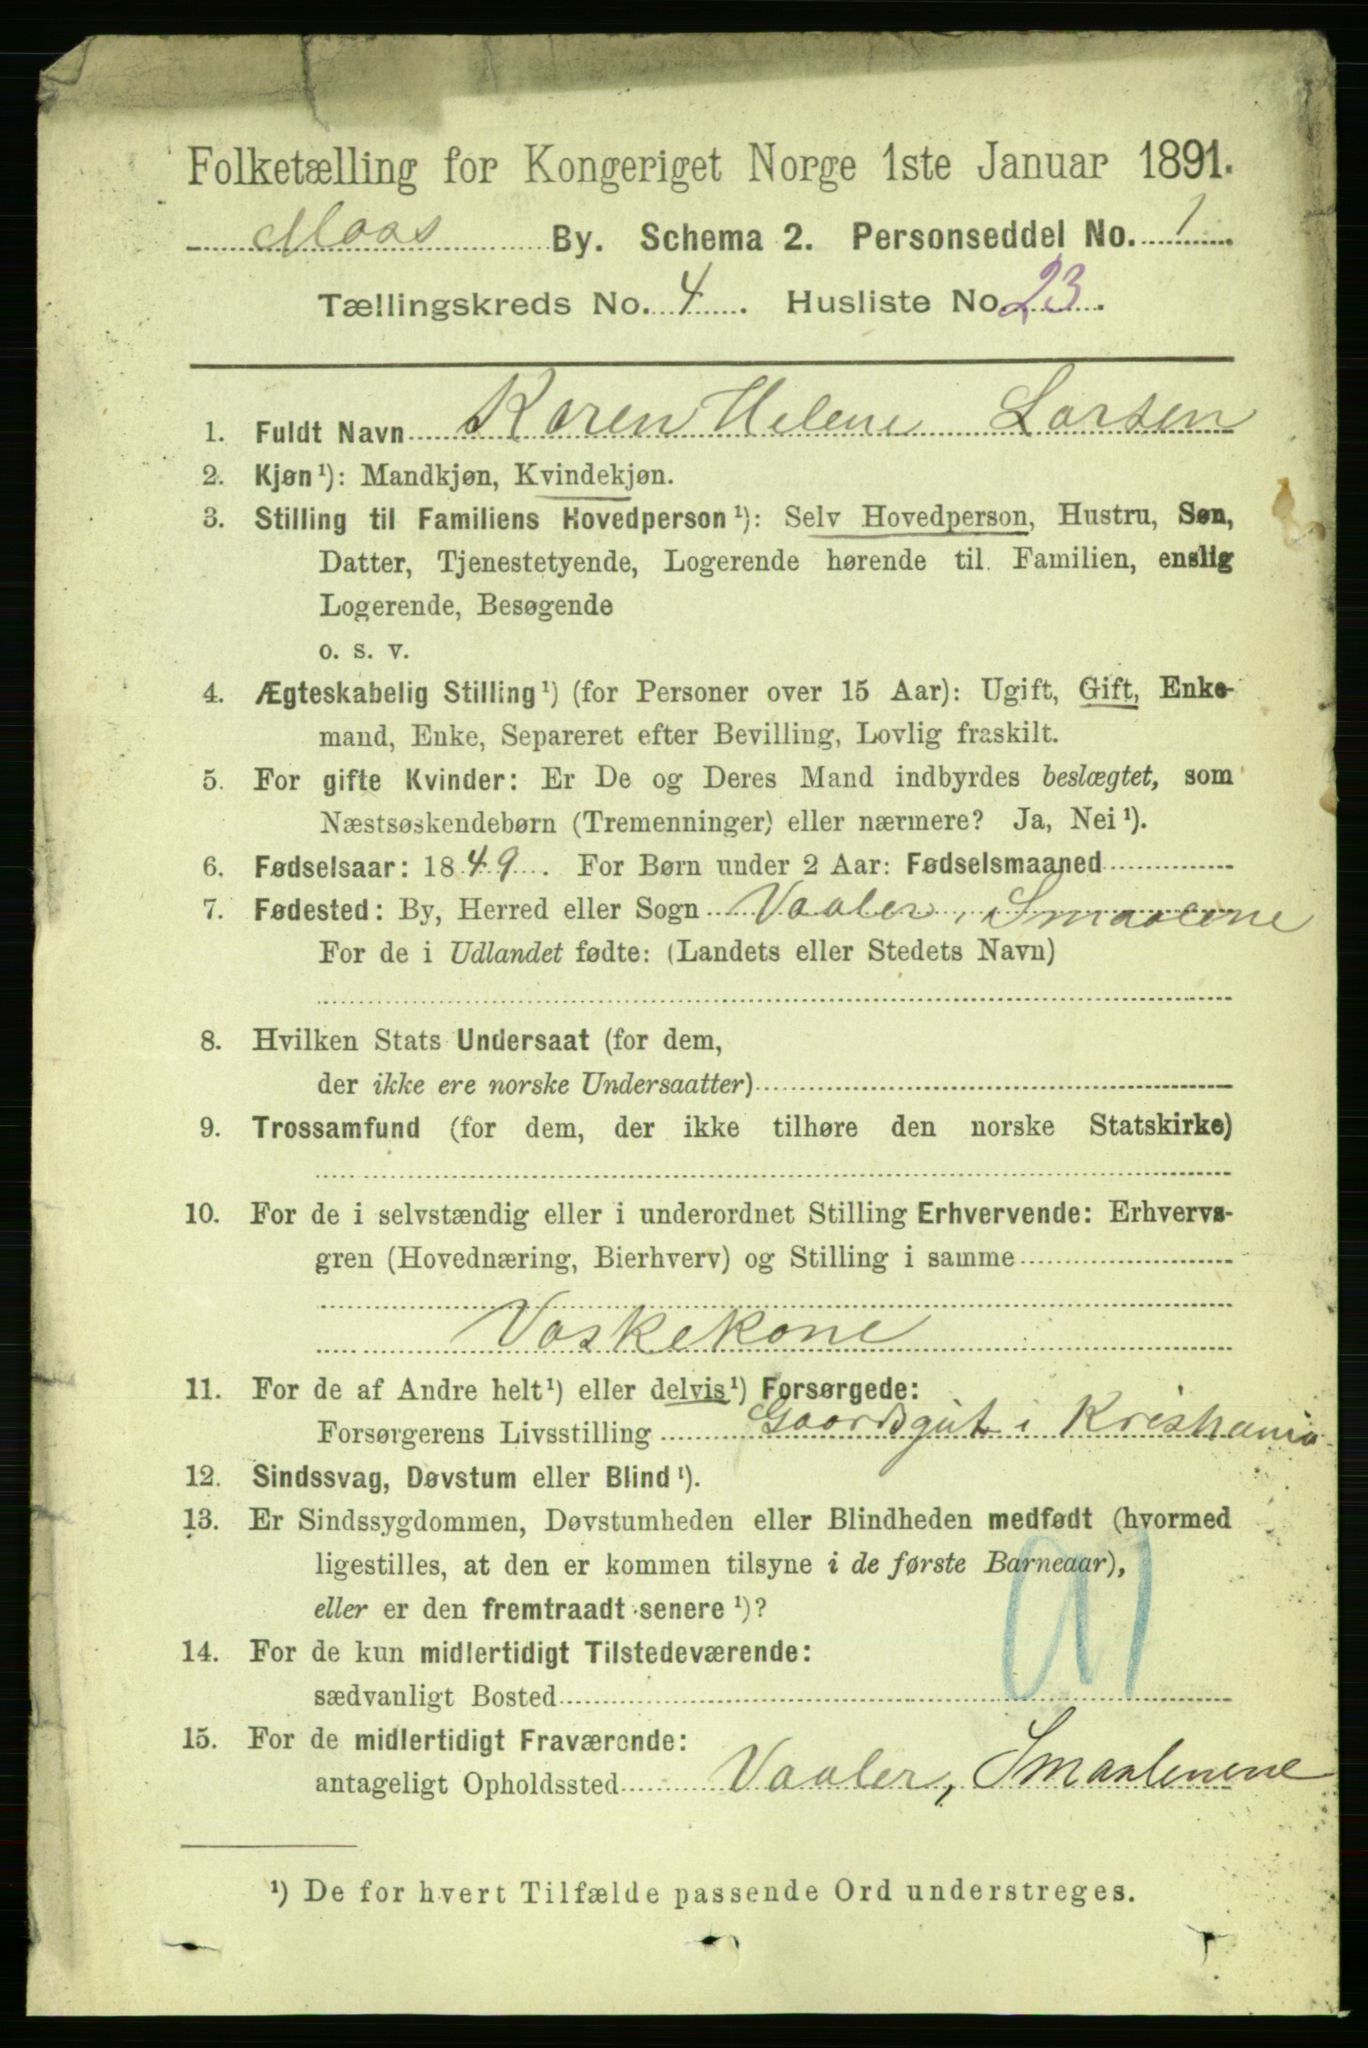 Folketælling for Kongeriget Norge 1ste Januar 1891.
Moss By. Schema 2. Personseddel No. 1
Tællingskreds No. 4. Husliste No. 23.
1. Fuldt Navn Karen Helene Larsen
2. Kjøn¹): Mandkjøn, Kvindekjøn.
3. Stilling til Familiens Hovedperson¹): Selv Hovedperson, Hustru, Søn,
Datter, Tjenestetyende, Logerende hørende til Familien, enslig
Logerende, Besøgende
o. s. v.
4. Ægteskabelig Stilling¹) (for Personer over 15 Aar): Ugift, Gift, Enke-
mand, Enke, Separeret efter Bevilling, Lovlig fraskilt.
5. For gifte Kvinder: Er De og Deres Mand indbyrdes beslægtet, som
Næstsøskendebørn (Tremenninger) eller nærmere? Ja, Nei¹).
6. Fødselsaar: 1849. For Børn under 2 Aar: Fødselsmaaned
7. Fødested: By, Herred eller Sogn Vaaler, Smaalene
For de i Udlandet fødte: (Landets eller Stedets Navn)
8. Hvilken Stats Undersaat (for dem,
der ikke ere norske Undersaatter)
9. Trossamfund (for dem, der ikke tilhøre den norske Statskirke)
10. For de i selvstændig eller i underordnet Stilling Erhvervende: Erhvervs-
gren (Hovednæring, Bierhverv) og Stilling i samme
Vaskekone
11. For de af Andre helt¹) eller delvis¹) Forsørgede:
Forsørgerens Livsstilling Gaardsgut i Kristiania
12. Sindssvag, Døvstum eller Blind¹).
13. Er Sindssygdommen, Døvstumheden eller Blindheden medfødt (hvormed
ligestilles, at den er kommen tilsyne i de første Barneaar),
eller er den fremtraadt senere¹)?
14. For de kun midlertidigt Tilstedeværende:
sædvanligt Bosted
15. For de midlertidigt Fraværende:
antageligt Opholdssted Vaaler, Smaalenene
¹) De for hvert Tilfælde passende Ord understreges.